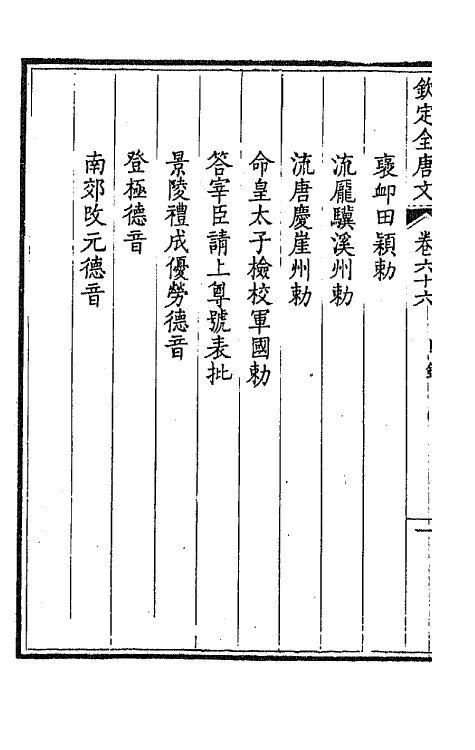 欽定全唐文 卷六十六 目錄 一
襃卹田穎勅
流龎驥溪州勅
流唐慶崖州勅
命皇太子檢校軍國勅
答宰臣請上尊號表批
景陵禮成優勞德音
登極德音
南郊改元德音